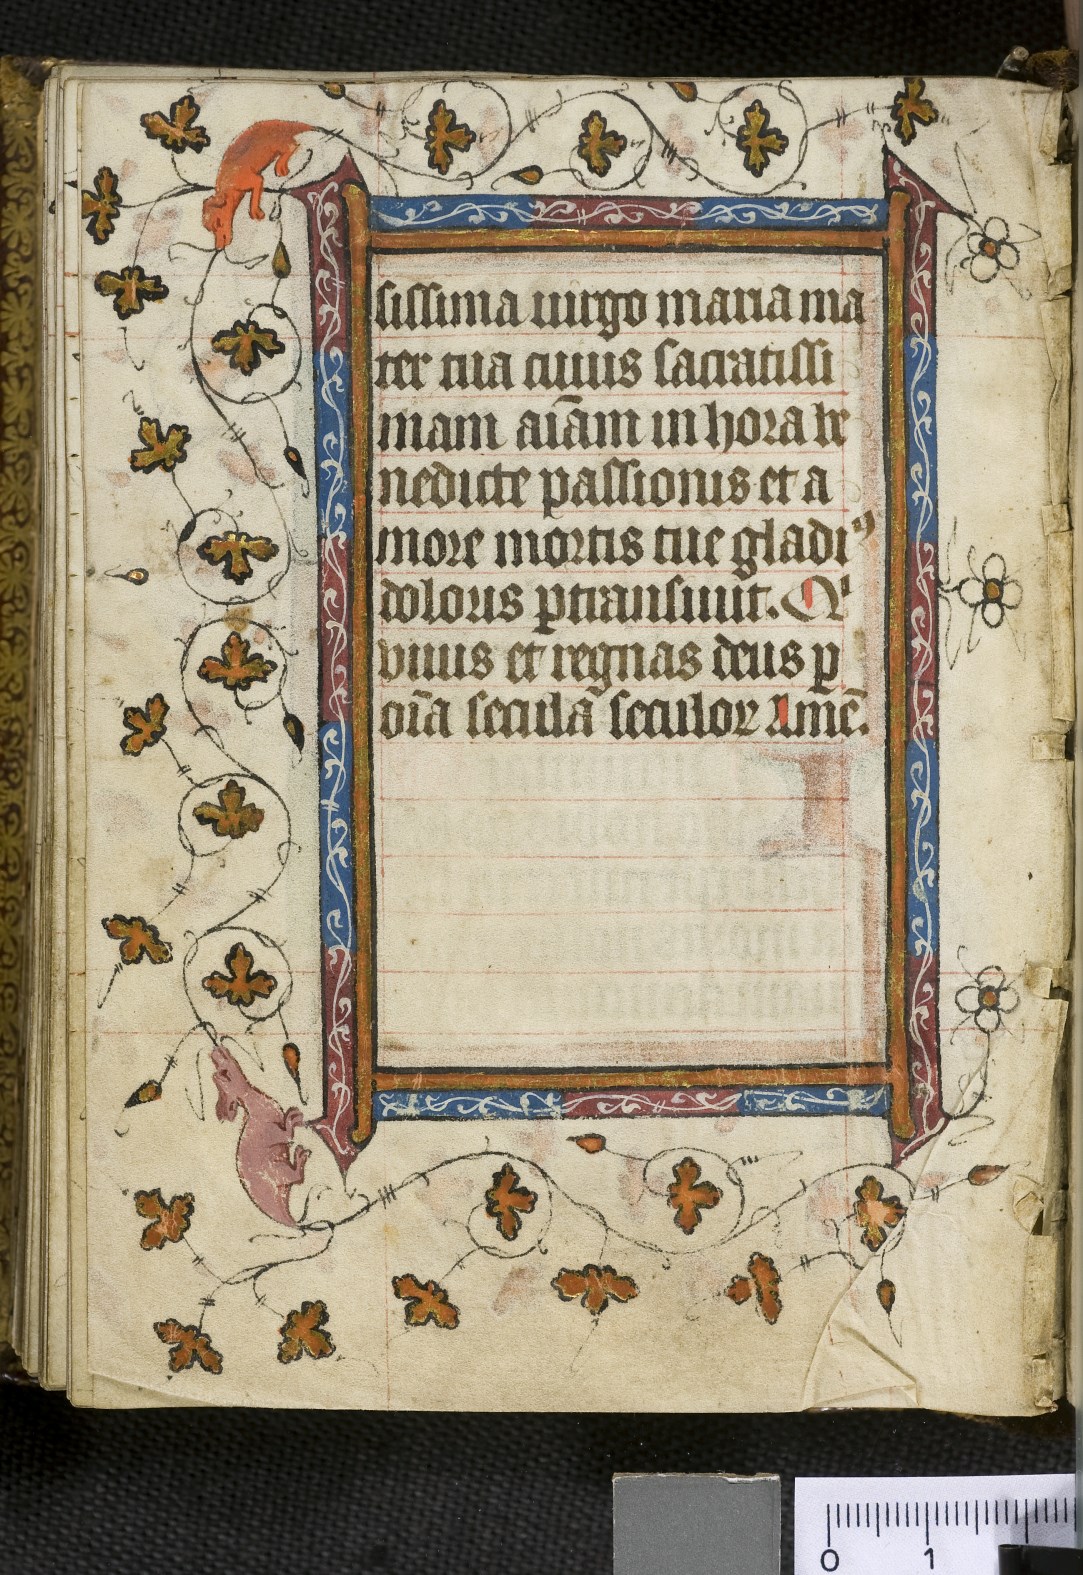 sissima uirgo maria ma
ter tua cuius sacratissi
mam aīam in hora be
nedicte passionis et a
more mortis tue gladiꝰ
doloris ꝑtransiuit. Qͥ
viuis et regnas deus ꝑ
oīa secula seculoꝝ Amē.
0 1